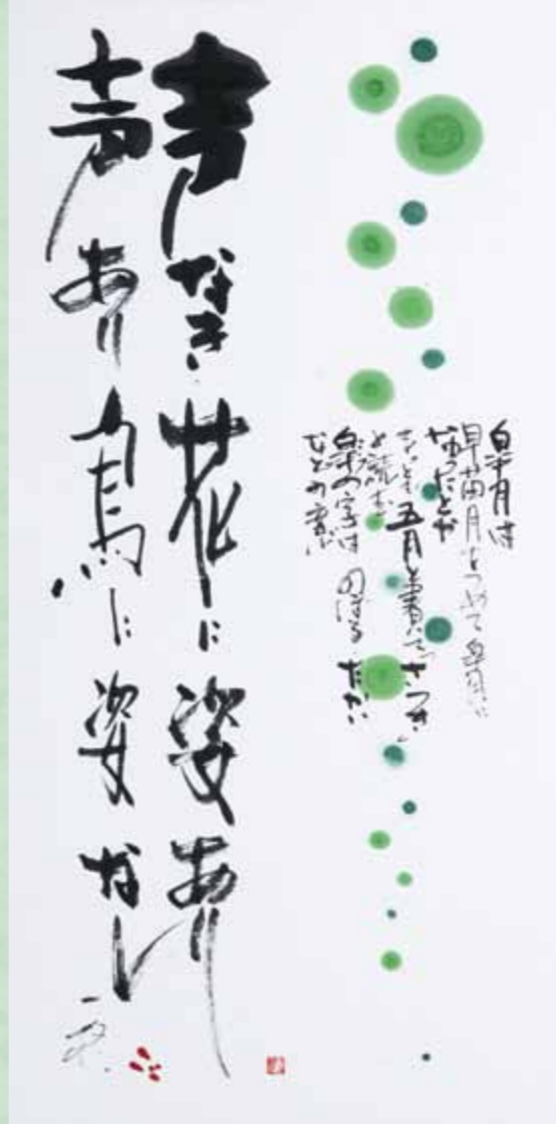 皐月は
早苗月をつめて皐月に
なったとか
五月と書いて さつき
と読ます
皐の字は のぼる たかい
などの意が
声なき 花に 姿あり
声あり 鳥に 姿なし